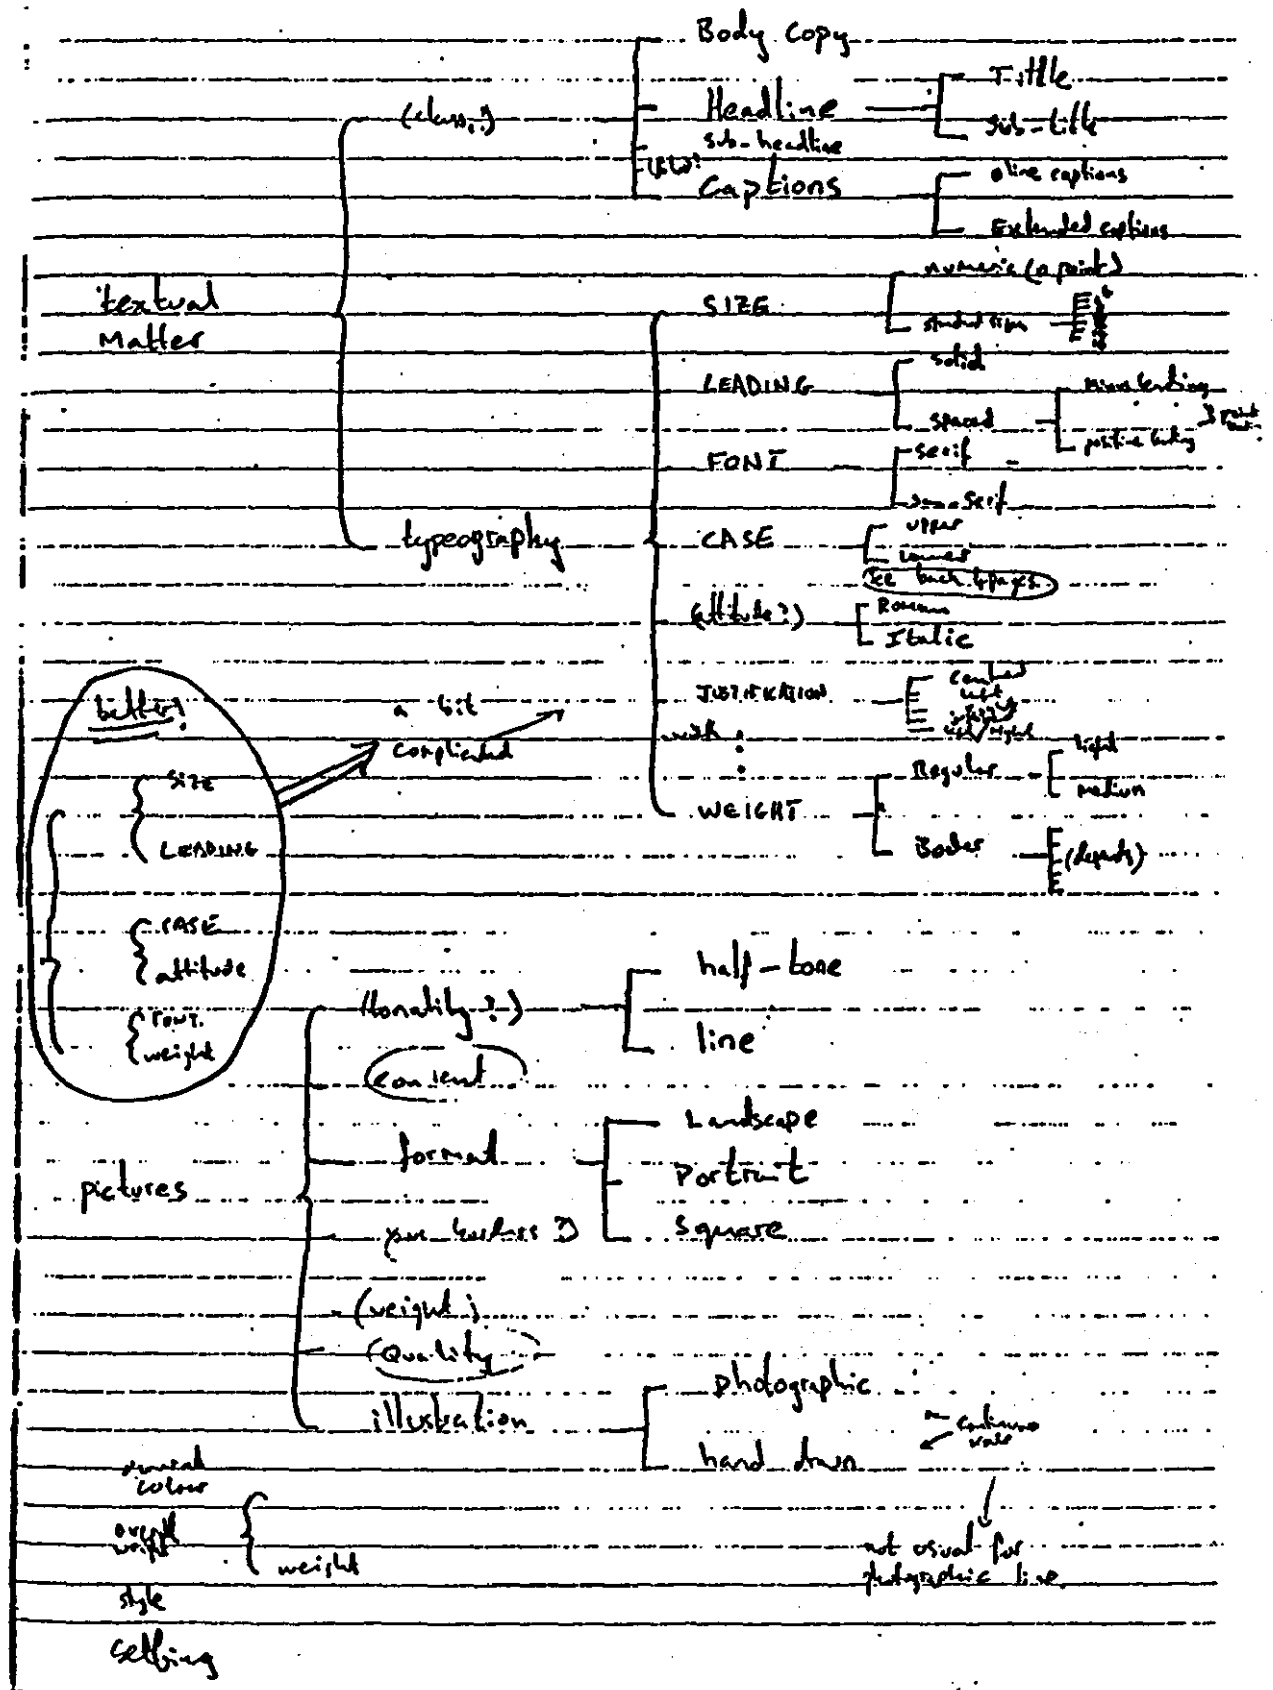 Body Copy
Headline
Tittle
sub-title
(class..?)
sub-headline
Captions
line captions
Extended captions
textual
Matter
SIZE
numeric (n point)
LEADING
solid
spaced
minus leading
positive leading
FONT
serif
sans-serif
typeography
CASE
upper
Lower
See back 4 pages
(attitude?)
Roman
Italic
JUSTIFICATION
left
WEIGHT
Regular
light
medium
(depends)
better!
a bit
complicated
SIZE
LEADING
CASE
attitude
FONT
weight
pictures
(tonality?)
half-tone
line
content
format
Landscape
Portrait
Square
(weight)
(Quality)
illustration
photographic
hand drawn
continuous
not usual for
photographic line.
colour
overall
weight
weight
style
setting